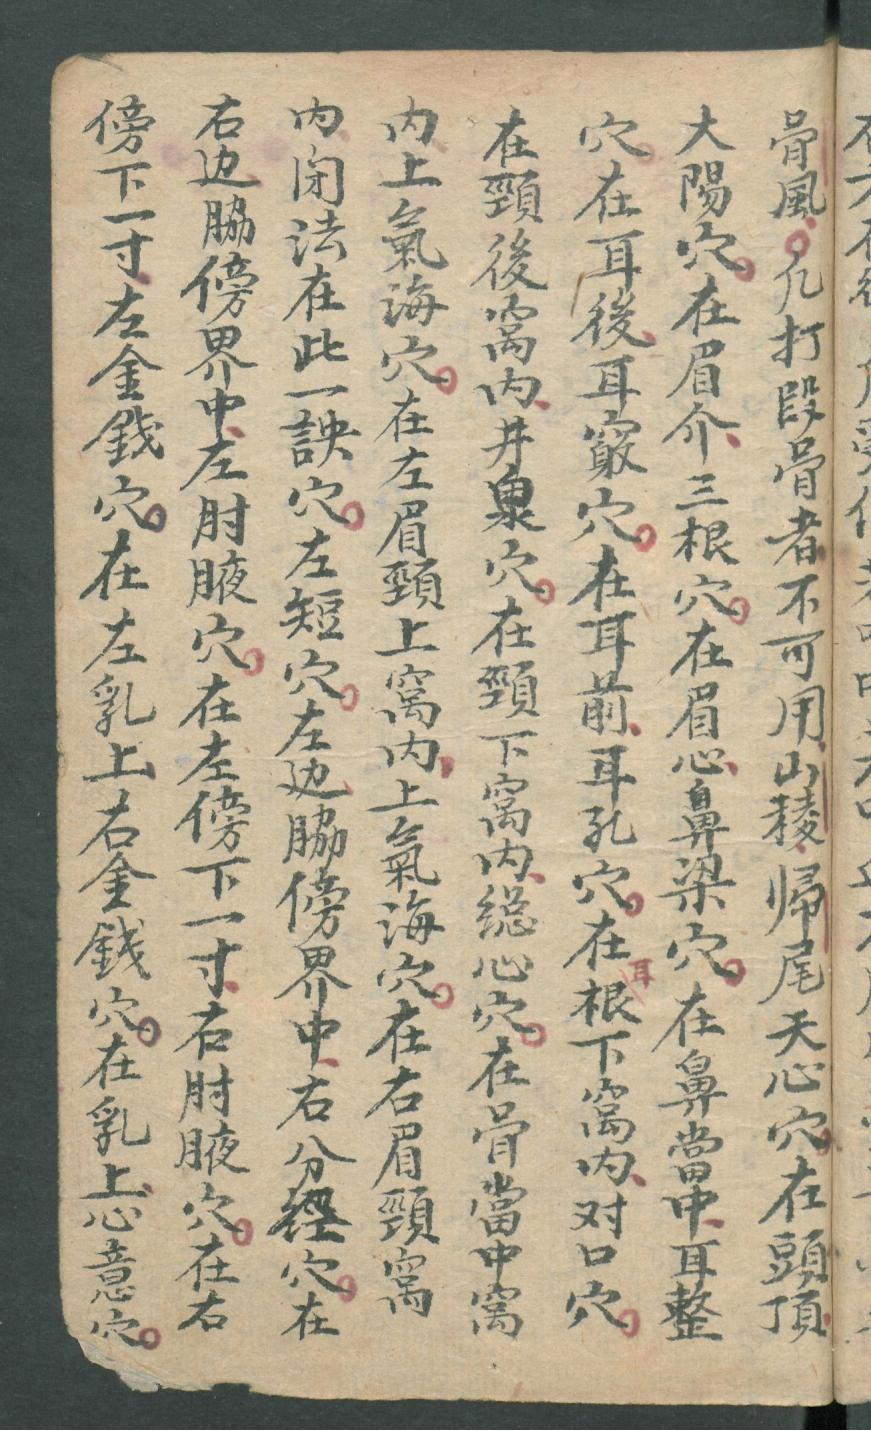 骨風。凢打段骨者不可用山稜歸尾天心穴在頭頂
大陽穴。在眉介、三根穴。在眉心、鼻梁穴。在鼻當中、耳整
穴在耳後、耳竅穴。在耳前、耳孔穴。在耳根下窩内、对口穴。
在頸後窩内、井泉穴。在頸下窩内、総心穴。在骨當中窩
内上氣海穴。在左眉頸上窩内、上氣海穴。在右眉頸窩
内闭法在此一訣穴。左短穴。左边脇傍界中、右分經穴。在
右边脇傍界中、左肘腋穴。在左傍下一寸、右肘腋穴。在右
傍下一寸、左金錢穴。在左乳上右金錢穴。在乳上、心意穴。